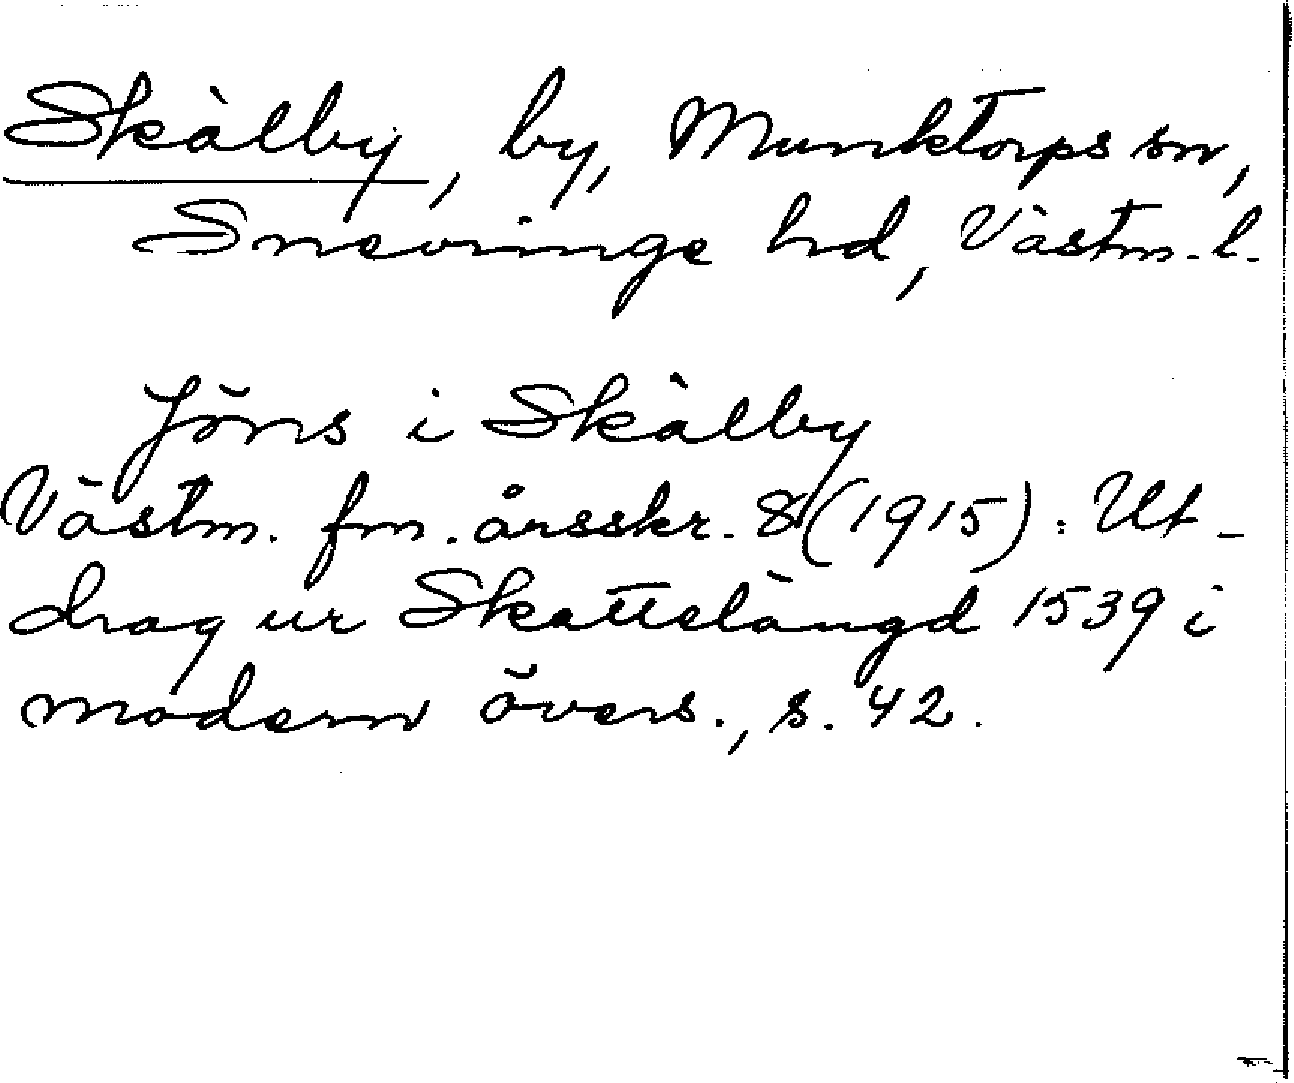 Skälby, by, Munktorps sn,
Snevringe hd, Västm. l.
Jöns i Skälby
Västm. fm. årsskr. 8 (1915): Ut-
drag ur Skattelängd 1539 i
modern övers., s. 42.